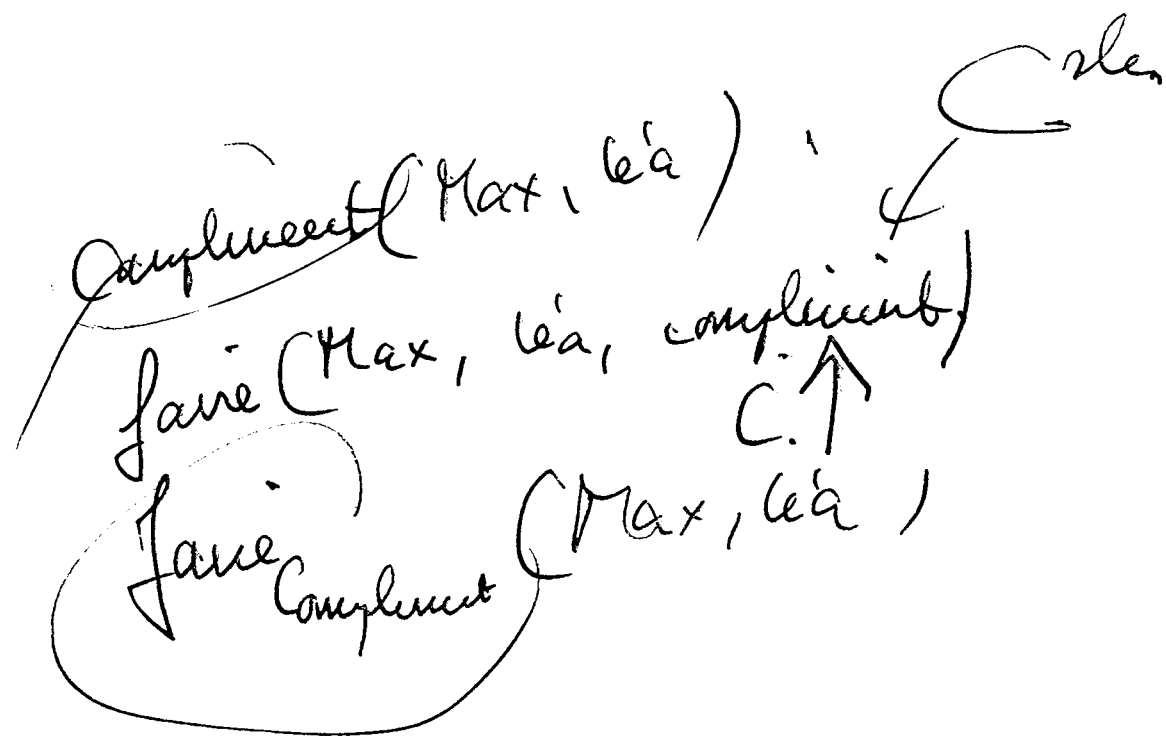 Compliment (Max, Léa)
faire (Max, Léa, compliment)
C.
faire Compliment (Max, Léa)